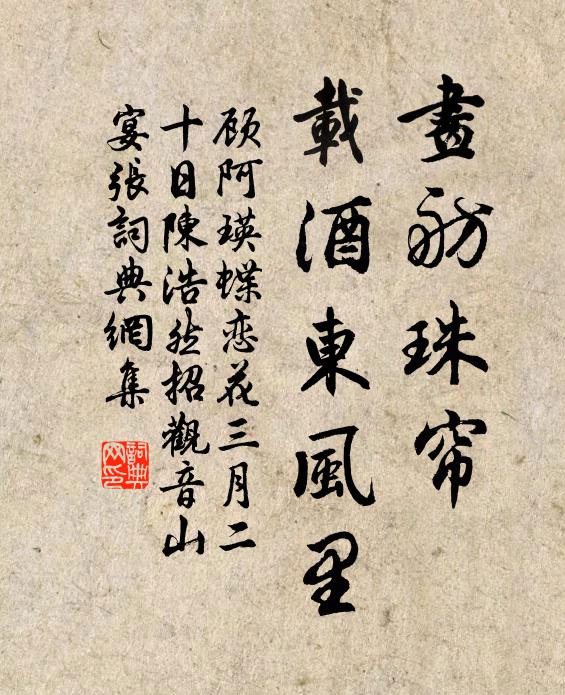 畫舫珠帘
載酒東風里
顾阿瑛蝶恋花三月二
十日陳浩然招觀音山
宴張詞典網集
詞典
网印